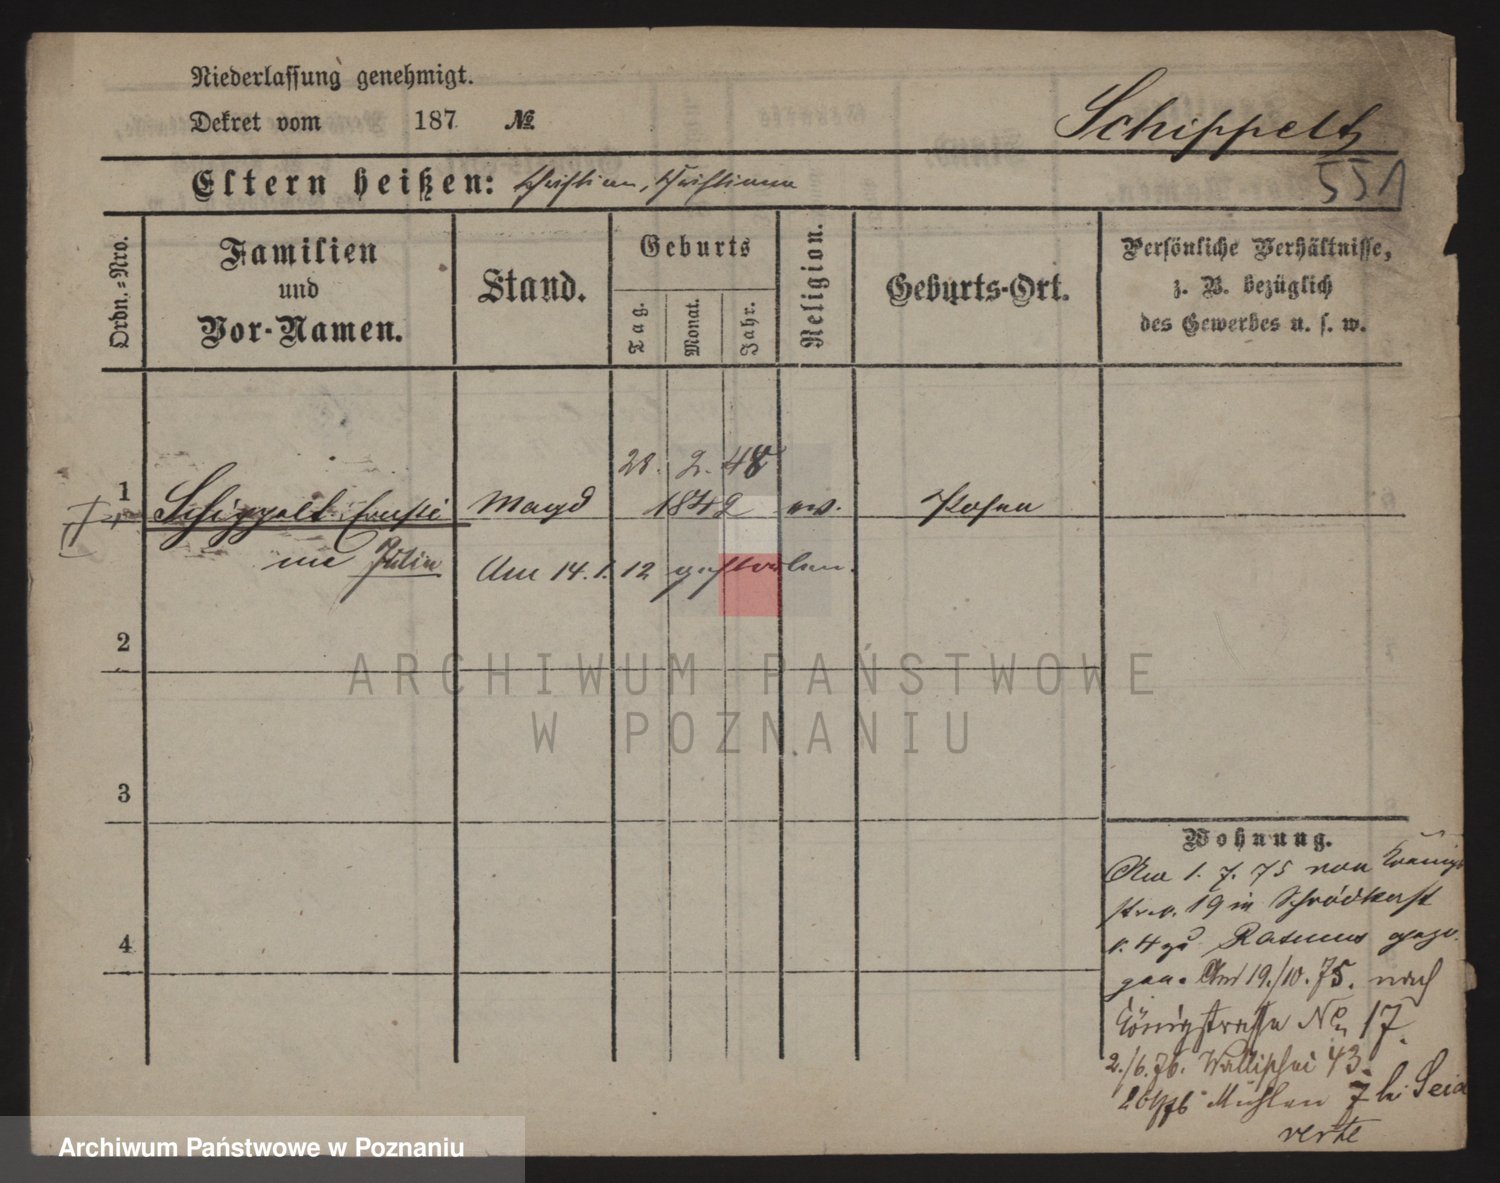 Niederlassung genehmigt.
Dekret vom 187 №
Schippelt
551
Eltern heißen: Christian, Christiana
Ordn.-Nro.
Familien
und
Vor-Namen.
Stand.
Geburts
Tag.
Monat.
Jahr.
Religion.
Geburts-Ort.
Persönliche Verhältnisse,
z. B. bezüglich
des Gewerbes u. s. w.
28. 2. 48
1 Schippelt Ernsti Magd 1842 ev. Posen
ne Julie Am 14.1.12 gestorben.
2
ARCHIWUM PAŃSTWOWE
W POZNANIU
3
4
Wohnung.
Am 1. 7. 75 von Königs
str. 19 in Schrodka
n. 4 zu gezo
gen. Am 19./10. 75. nach
Königstrasse No 17.
2./6.76. Wallischei 43.
Mühlen 7 bei
verte
Archiwum Państwowe w Poznaniu